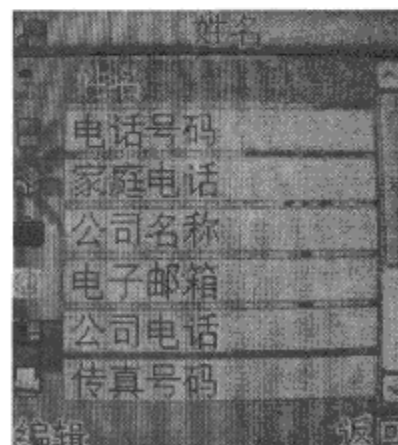 姓名
姓名
电话号码
家庭电话
公司名称
电子邮箱
公司电话
传真号码
编辑
返回